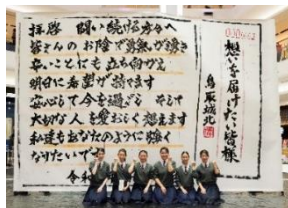 拝啓 闘い続ける方々へ
皆さんのお陰で勇気が湧き
辛いことにも立ち向かえ
明日に希望が持てます
安心して今を過ごし そして
大切な人を愛おしく想えます
私達もあなたのように輝く
なりたいです
令和
想いを届けたい皆様
鳥取城北